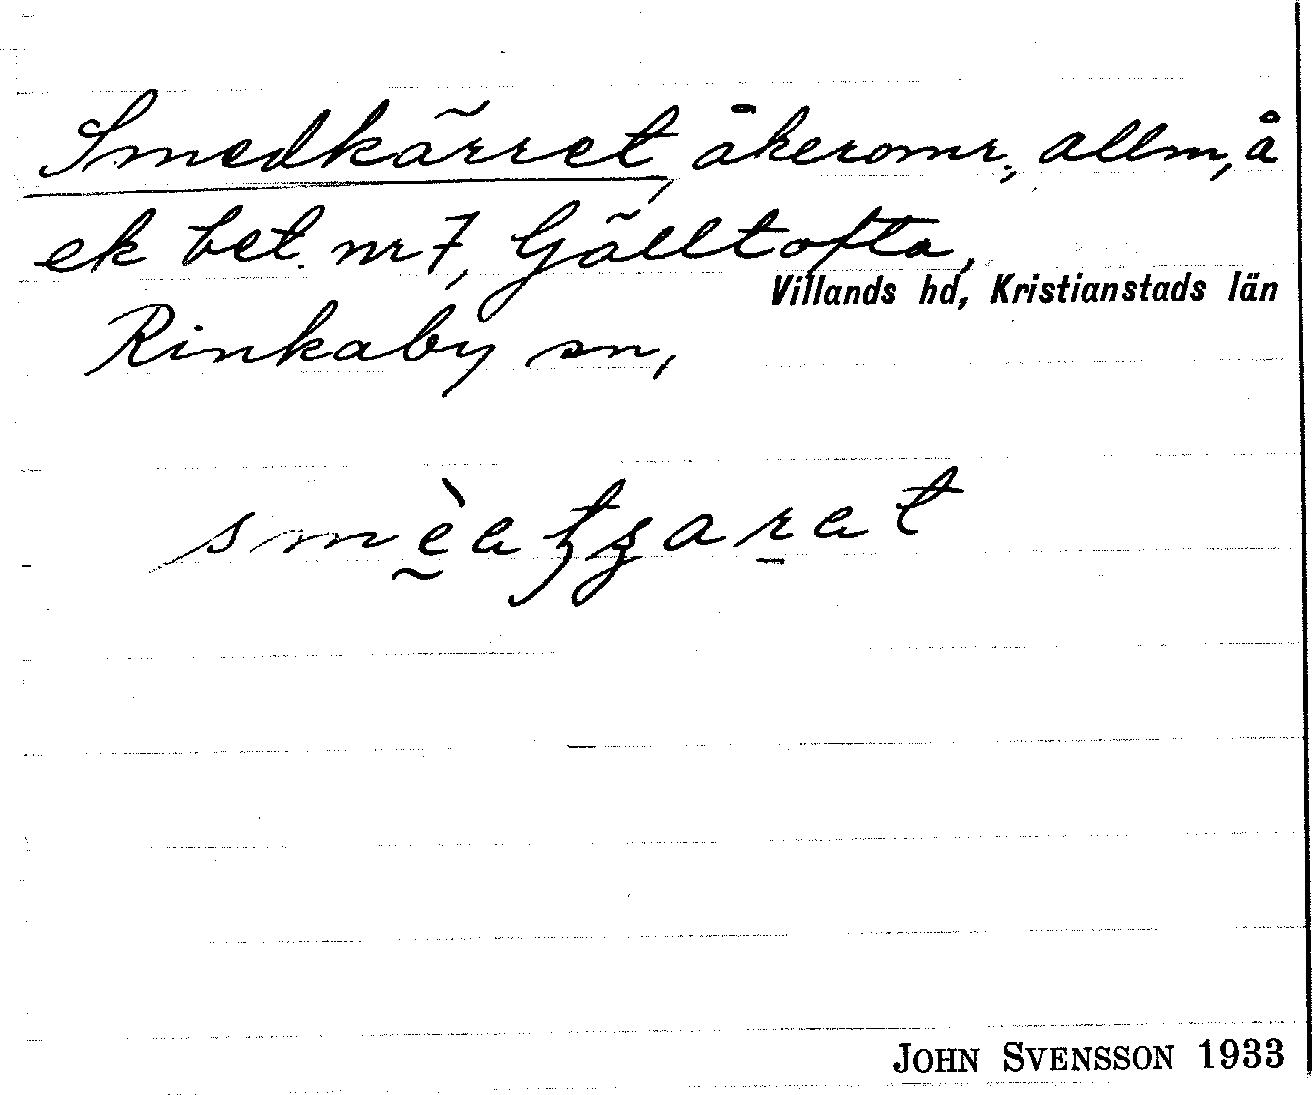 Smedkärret, åkeromr., allm, å
ek bet. nr 7, Gälltofta,
Villands hd, Kristianstads län
Rinkaby sn,
JOHN SVENSSON 1933